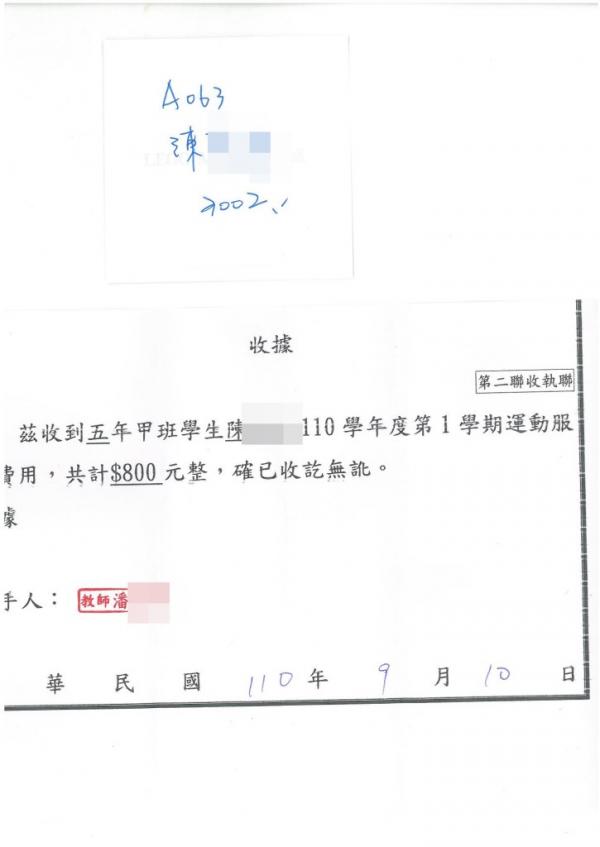 A063
陳
2002
收據
第二聯收執聯
茲收到五年甲班學生陳 110學年度第1學期運動服
費用，共計$800元整，確已收訖無訛。
據
手人： 教師潘
華民國 110年 9月 10日